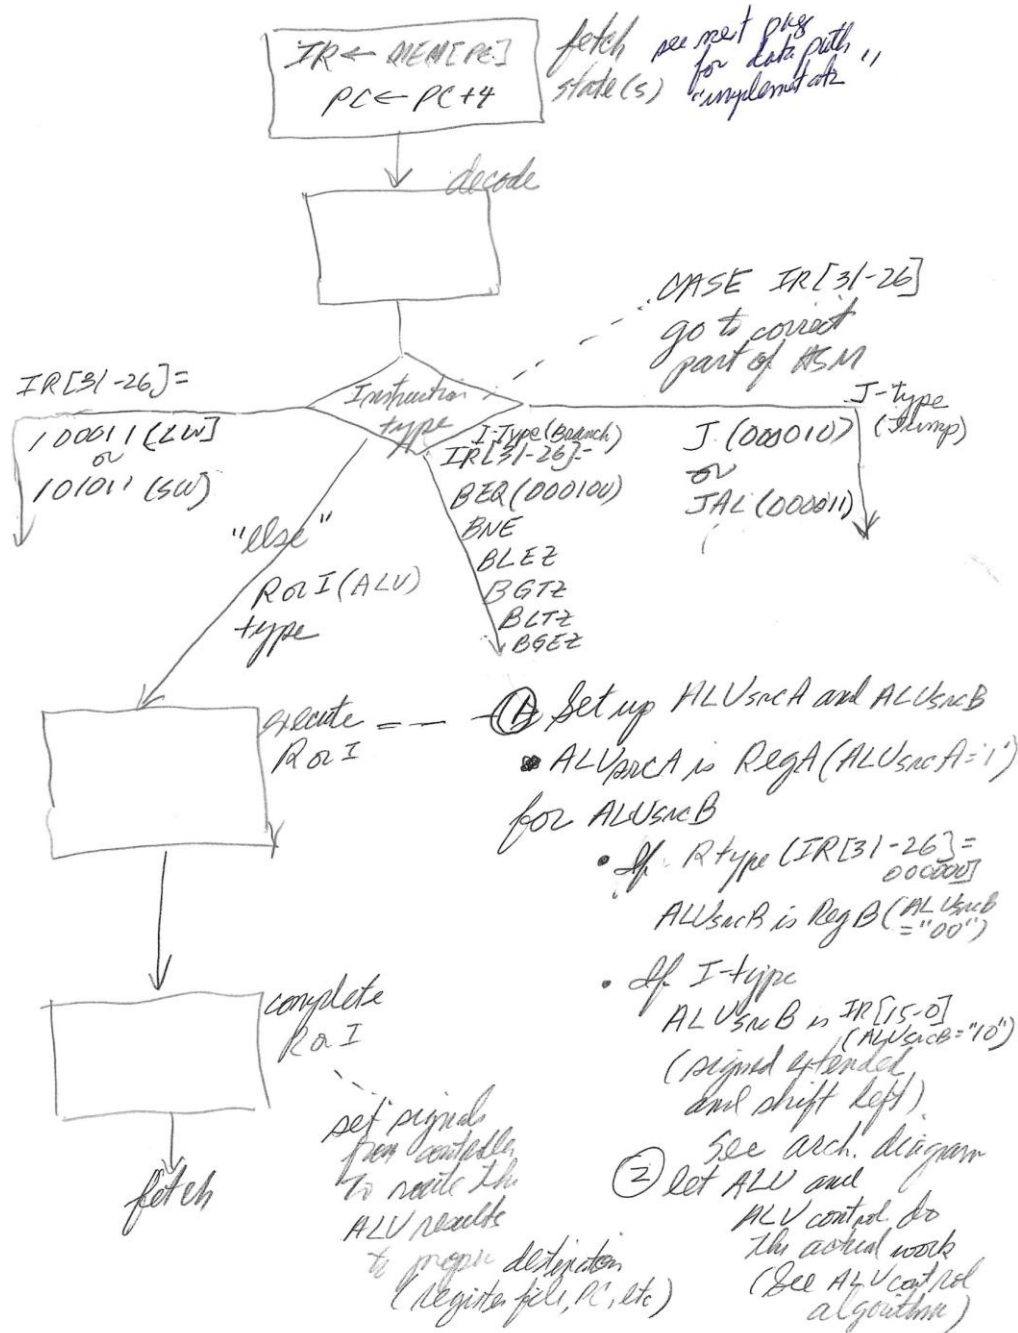 IR ← MEM[PC]
PC ← PC+4
fetch
state(s)
see next page
for data path
"implementatn"
decode
CASE IR[31-26]
go to correct
part of ASM
IR[31-26]=
100011 (LW)
or
101011 (SW)
Instruction
type
I-Type (Branch)
IR[31-26]=
BEQ (000100)
BNE
BLEZ
BGTZ
BLTZ
BGEZ
J-type
(Jump)
J (000010)
or
JAL (000011)
"else"
R or I (ALU)
type
execute
R or I
Set up ALUsrcA and ALUsrcB
• ALUsrcA is RegA (ALUsrcA='1')
for ALUsrcB
• If R type (IR[31-26]=
000000]
ALUsrcB is Reg B (ALUsrcB
="00")
• If I-type
ALUsrcB is IR[15-0]
(ALUsrcB="10")
(signed extended
and shift left)
See arch. diagram
② let ALU and
ALU control do
the actual work
(See ALU control
algorithm)
complete
R or I
set signals
from controller
to route the
ALU results
to proper destination
(register file, PC, etc)
fetch